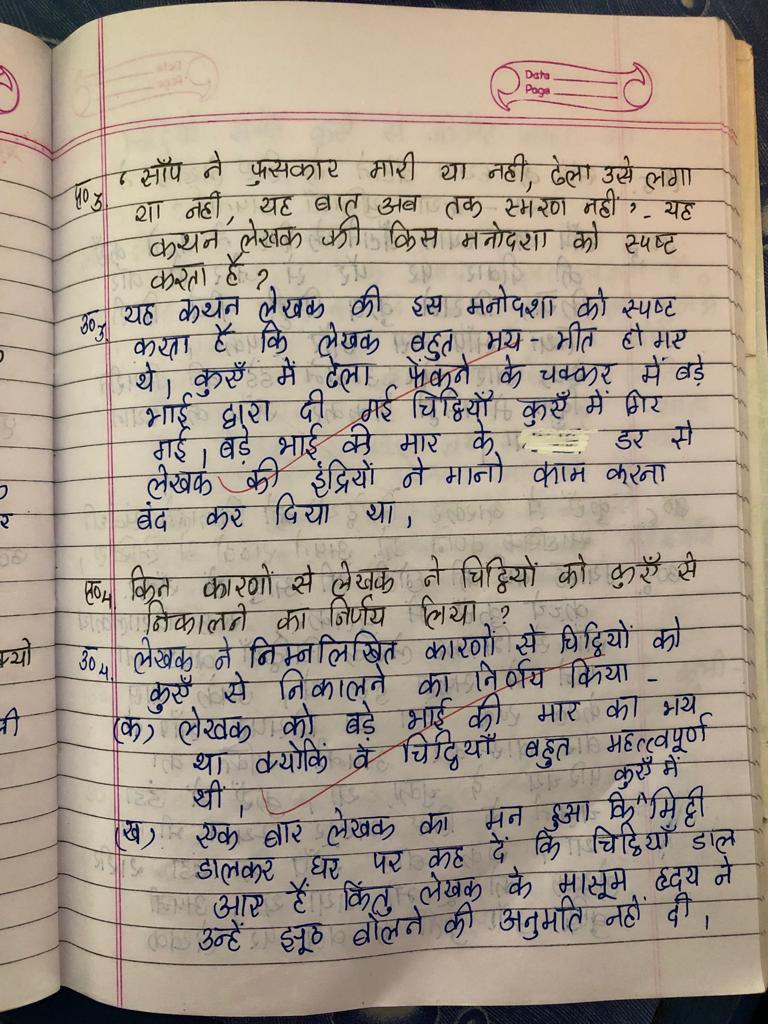 Data
Page
प्र०3. 'साँप ने फुसकार मारी या नहीं, ढेला उसे लगा
या नहीं, यह बात अब तक स्मरण नहीं'- यह
कथन लेखक की किस मनोदशा को स्पष्ट
करता है?
उ०3. यह कथन लेखक की इस मनोदशा को स्पष्ट
करता है कि लेखक बहुत भय-भीत हो गए
थे। कुएँ में ढेला फेंकने के चक्कर में बड़े
भाई द्वारा दी गई चिट्ठियाँ कुएँ में गिर
गई। बड़े भाई की मार के डर से
लेखक की इंद्रियों ने मानो काम करना
बंद कर दिया था।
प्र०4. किन कारणों से लेखक ने चिट्ठियों को कुएँ से
निकालने का निर्णय लिया?
उ०4. लेखक ने निम्नलिखित कारणों से चिट्ठियों को
कुएँ से निकालने का निर्णय किया -
(क) लेखक को बड़े भाई की मार का भय
था क्योकिं वे चिट्ठियाँ बहुत महत्त्वपूर्ण
थीं।
कुएँ में
(ख) एक बार लेखक का मन हुआ कि ^ मिट्टी
डालकर घर पर कह दें कि चिट्ठियाँ डाल
आए हैं किंतु लेखक के मासूम हृदय ने
उन्हें झूठ बोलने की अनुमति नहीं दी।
क्यों